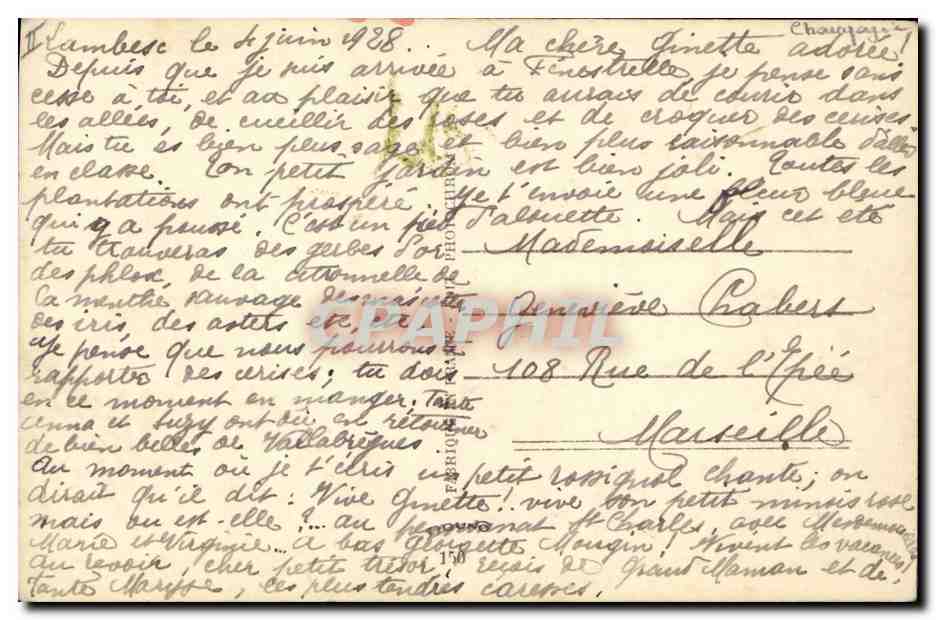 Lambesc le 4 juin 1928.. Ma chère Ginette adorée!
Depuis que je suis arrivée à Fénestrelle, je pense sans
cesse à toi, et au plaisir que tu aurais de courir dans
les allées, de cueillir des roses et de croquer des cerises.
Mais tu es bien plus sage et bien plus raisonnable d'aller
en classe. Ton petit jardin est bien joli. Toutes les
plantations ont prospéré. Je t'envoie une fleur bleue
qui y a poussé. C'est un pied d'alouette. Mais cet été
tu trouveras des gerbes d'or
des phlox, de la citronnelle de
la menthe sauvage
des iris, des asters etc, etc
Je pense que nous pourrons t
rapporter des cerises; tu dois
en ce moment en manger. Tante
et Suzy ont dû en retourner
de bien belles de Vallabrègues
Au moment où je t'écris un petit rossignol chante; on
dirait qu'il dit: Vive Ginette! vive son petit minois rose
mais où est-elle?... au pensionnat St Charles, avec Mesdemoiselles
Marie et Virginie... à bas Georgette Mougin! Vivent les vacances!
Au revoir, cher petit trésor, reçois de Grand Maman et de
Tante Maryse, les plus tendres caresses.
Mademoiselle
Geneviève Chabert
108 Rue de l'Epée
Marseille
CPAPHIL
150